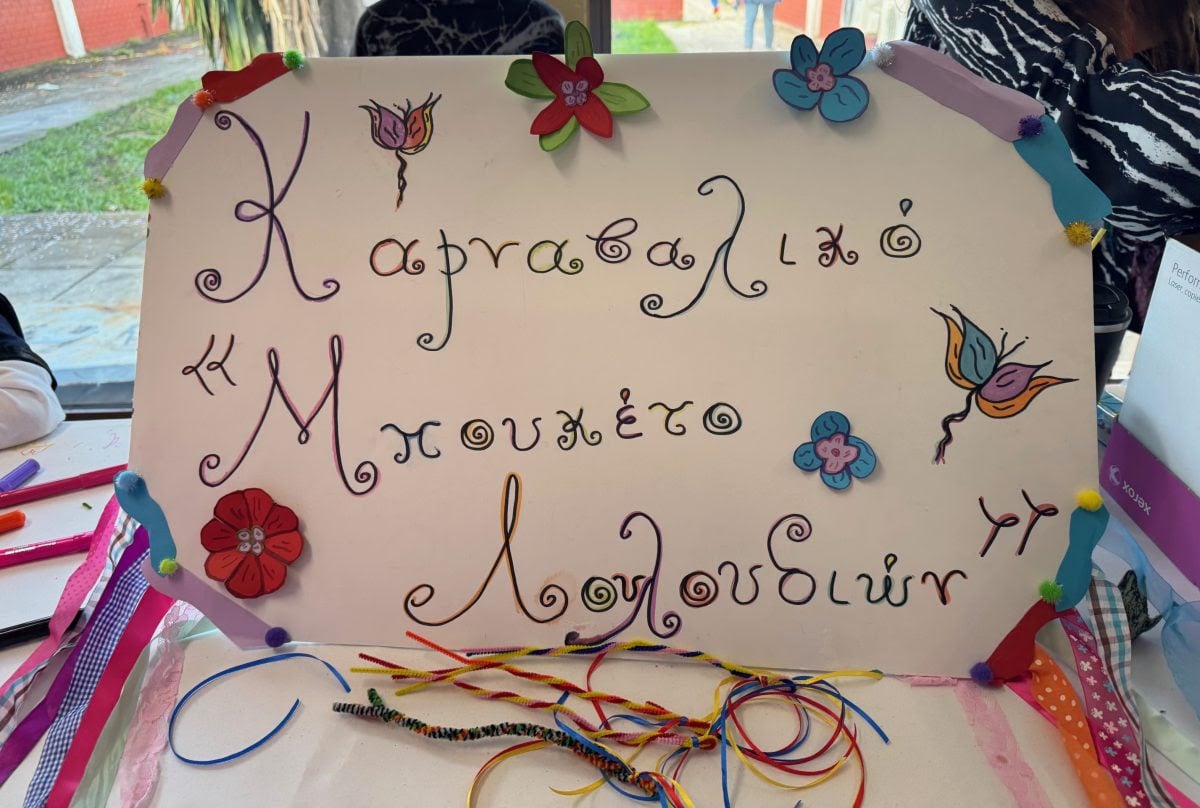 Καρναβαλικό
«Μπουκέτο
Λουλουδιών»
Perform
Laser, copie
xerox